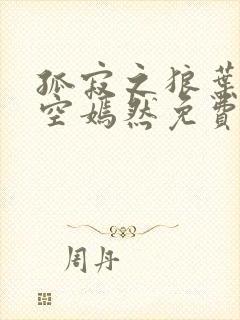 孤寂之狼葉
空嫣然免費
周丹